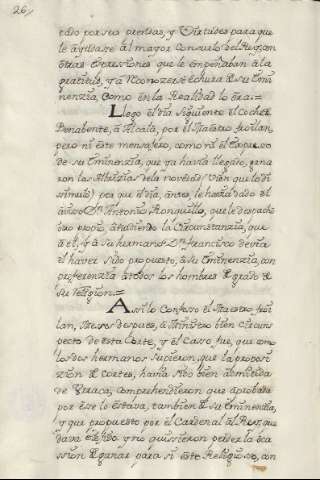 26
cado por sus prendas, y Virtudes para que
le ayudase al mayor Consuelo del Rey, con
otras expresiones que le empeñaban a la
gratitud, y a Reconozerse echura de su Emi
nenzia, Como en la Realidad lo era.=
Llego el dia siguiente el Coche de
Benabente, à Alcalà, por el Maestro froilan,
pero ni este mensajero, como ni el Expreso
de su Eminenzia, que ya havia llegado, gana
ron las Albrizias de la novedad (bien que le di
simulò) por que el dia, antes, le havia dado el
aviso Dn. Antonio Ronquillo, que le despachò
otro propio, añadiendo la Circunstanzia, que
à el, y à su hermano Dn. francisco devia
el haver sido propuesto, à su Eminenzia, con
preferenzia à todos los hombres de grado de
su religion.=
Asi lo Confesò el Maestro froi
lan, Meses despues, à Ministro bien Circuns
pecto de esta Corte, y el Caso fue, que como
los dos hermanos supieron, que la proposi
zion de Cortes, havia sido bien admitida
de Comprehendieron que aprobada
por ese lo estava, tambien de su Eminenzia,
y que propuesto por el Cardenal al Rey, que
dava elejido y no quisieron perder la oca
ssion de ganar para si este Religioso, con